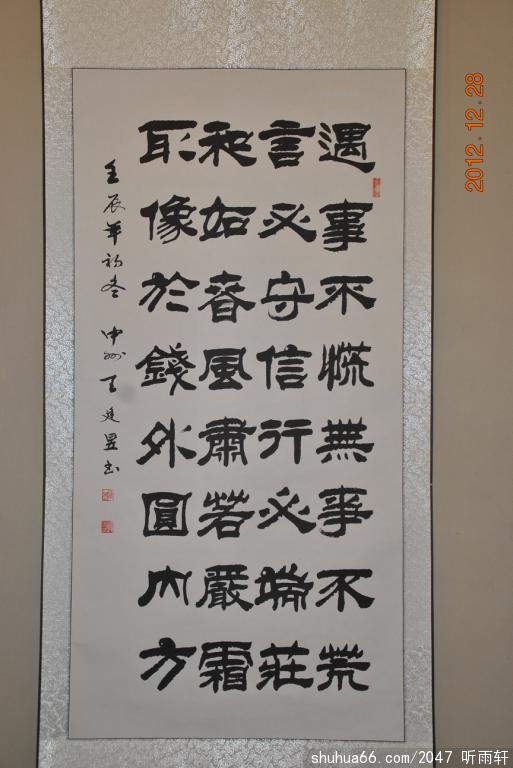 遇事不慌無事不荒
言必守信行必端莊
和如春風肅若嚴霜
取像於錢外圓內方
壬辰年初冬 中州王廷昱书
2012.12.28
shuhua66.com/2047 听雨轩